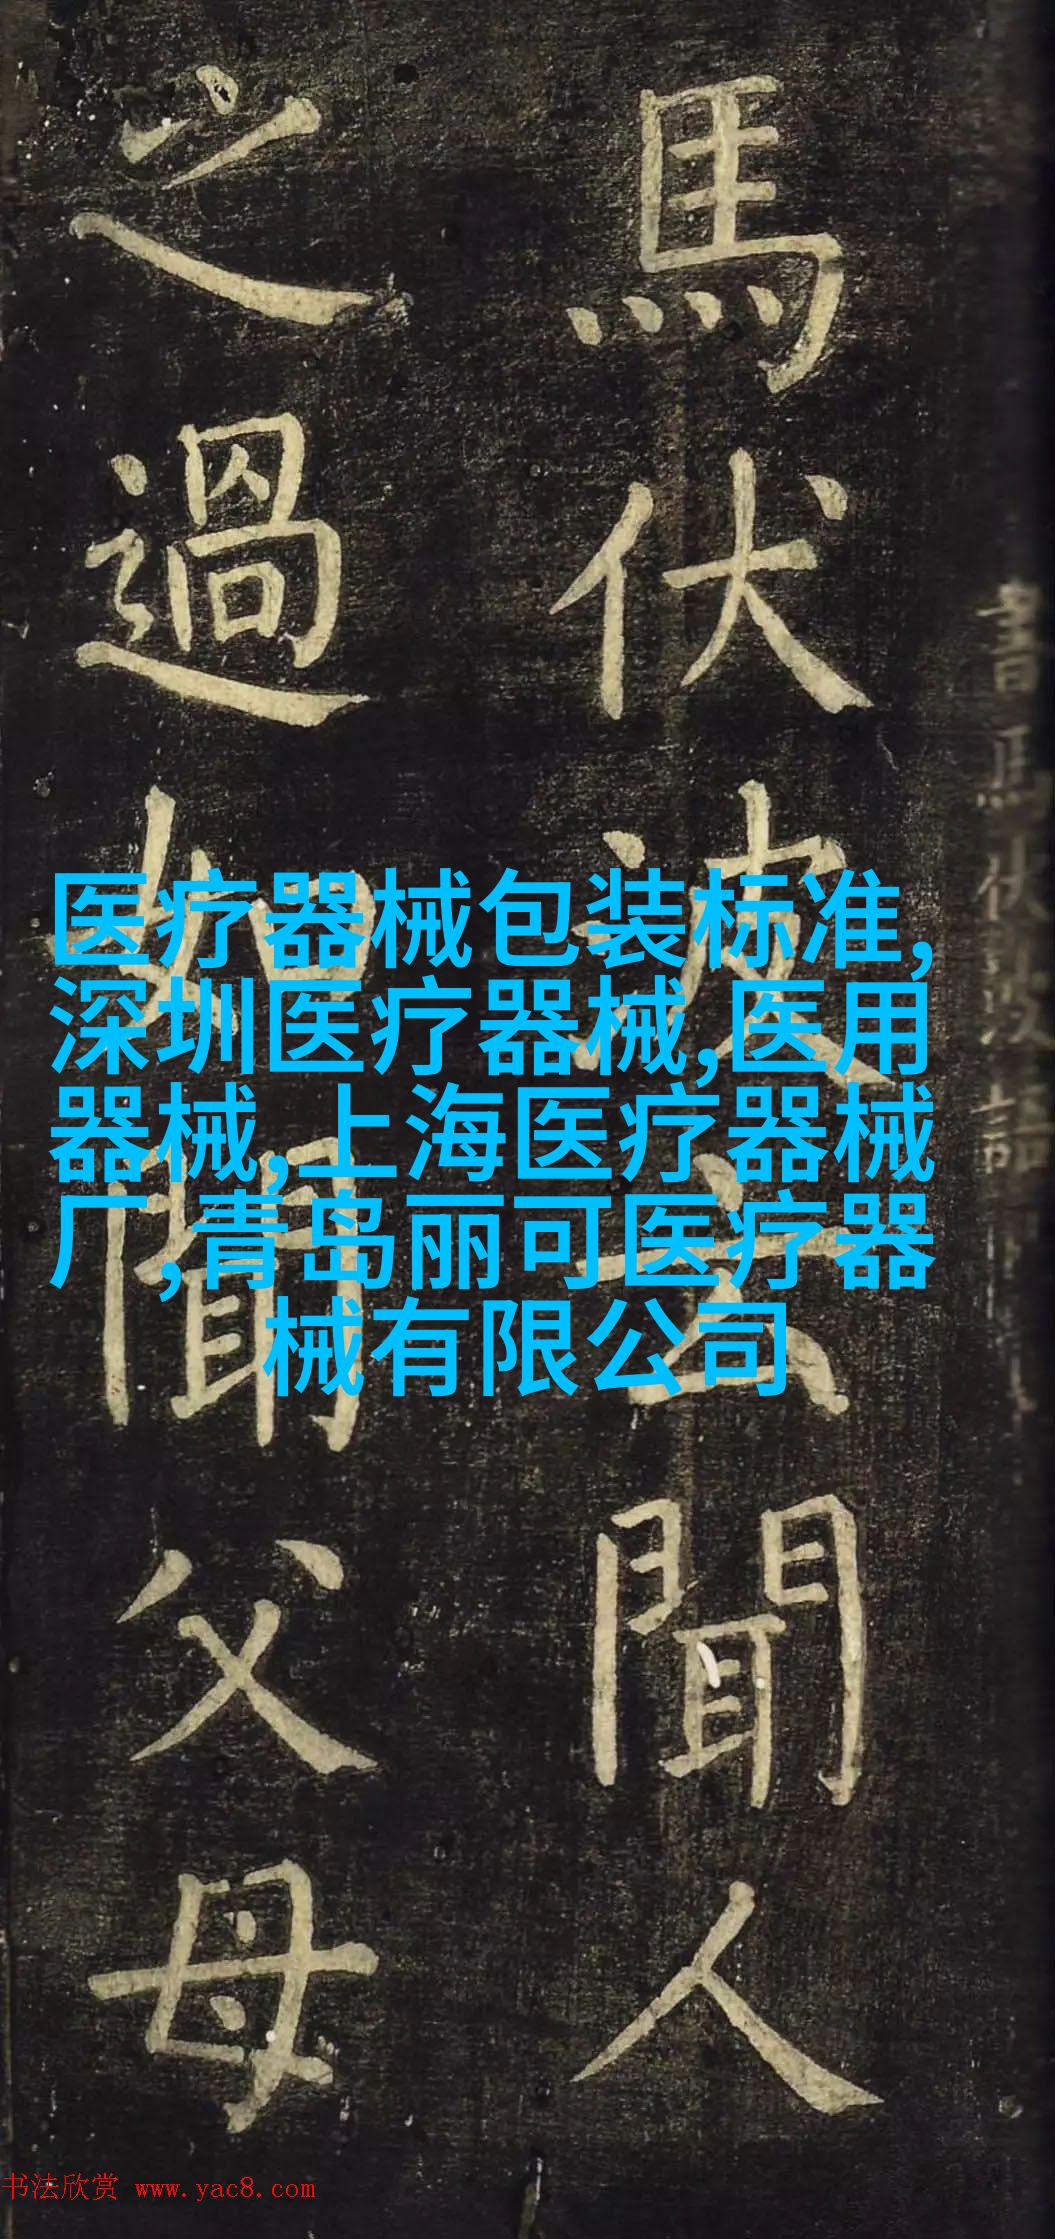 馬伏波云聞人
之過如聞父母
医疗器械包装标准,
深圳医疗器械,医用
器械,上海医疗器械
厂,青岛丽可医疗器
械有限公司
书法欣赏 www.yac8.com